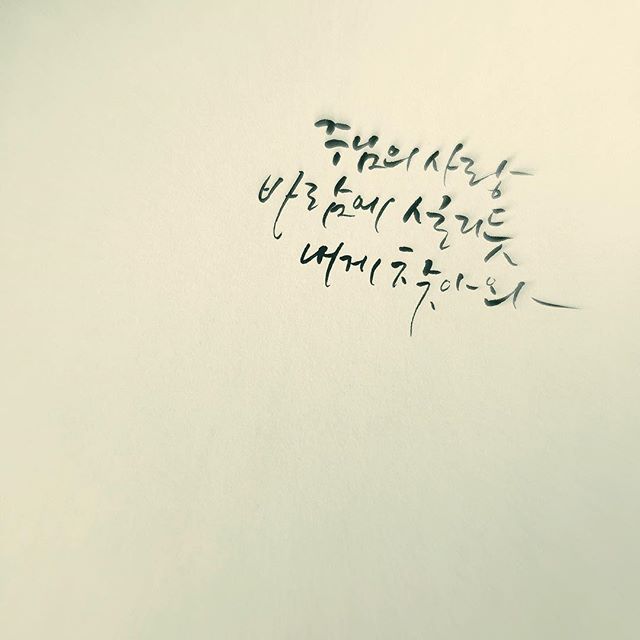 주님의 사랑
바람에 실리듯
내게 찾아와